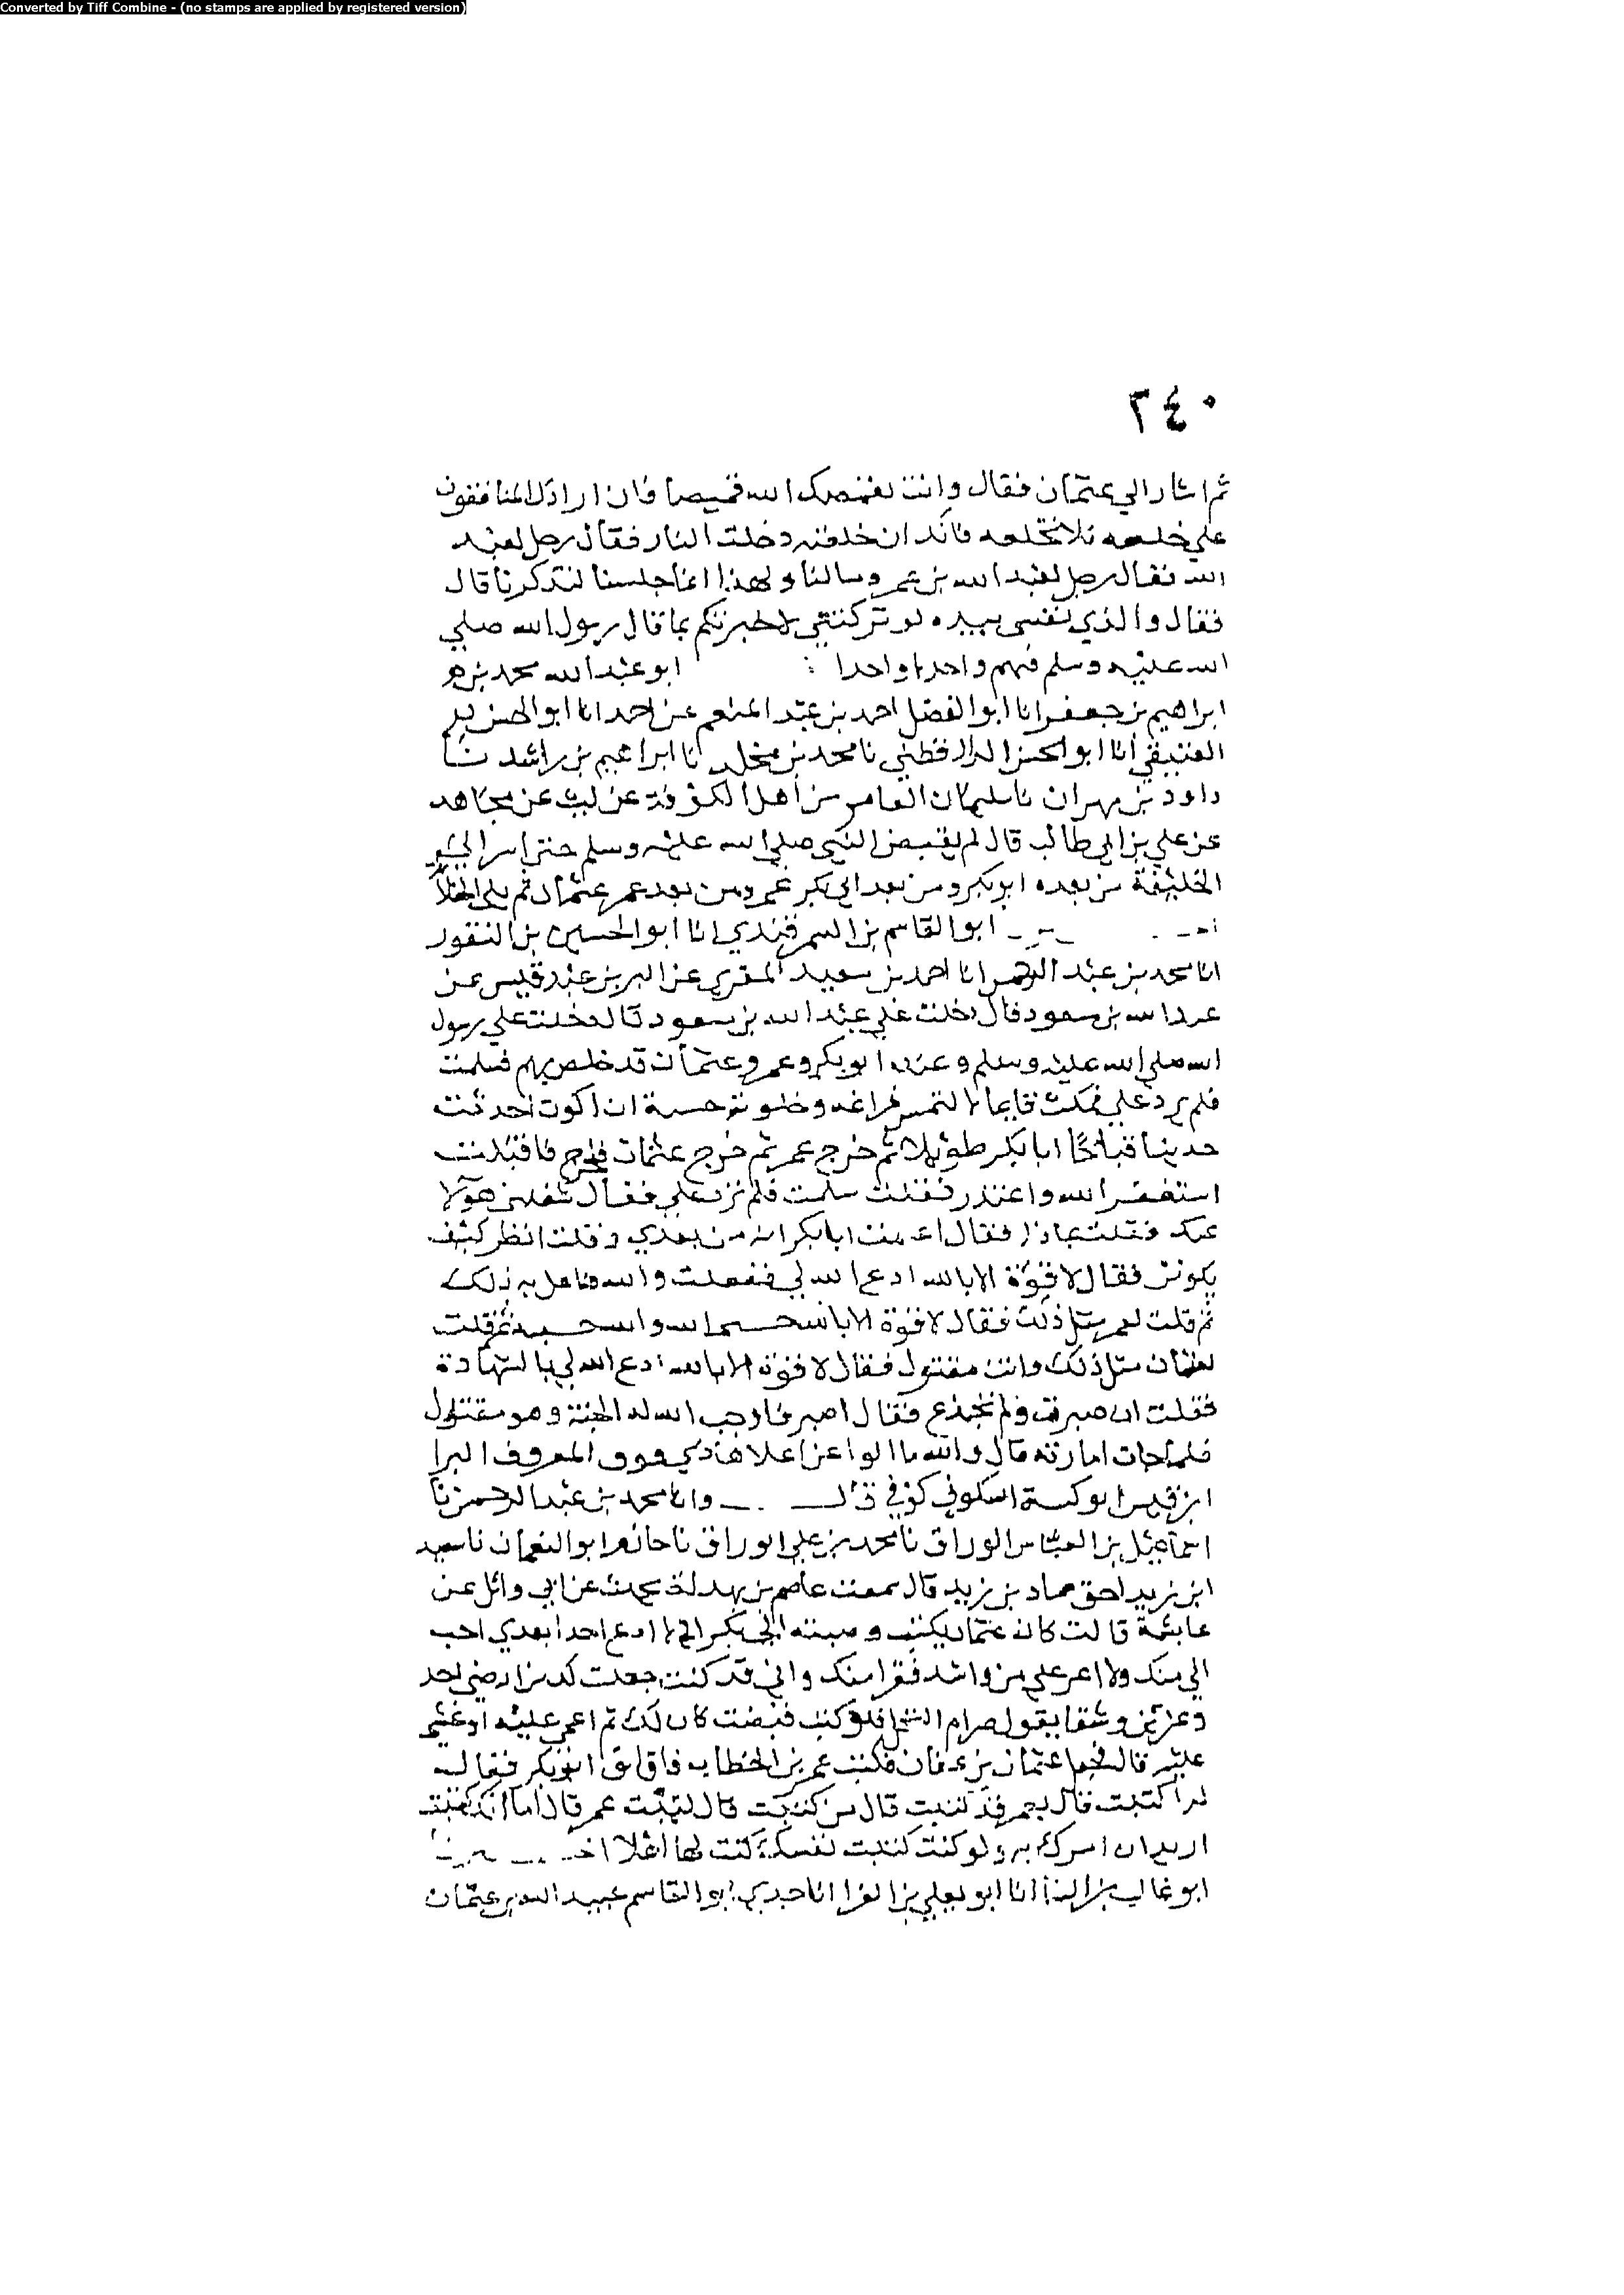 Converted by Tiff Combine - (no stamps are applied by registered version)
٢٤٠
ثم اشار الي عثمان فقال وانت يقمصك الله قميصا فان ارادك المنافقون
علي خلعه فلا تخلعه فانك ان خلعته دخلت النار فقال رجل لعبد
الله فقال رجل لعبد الله بن عمر وسالنا ولهذا انما جلسنا لتذكرنا قال
فقال والذي نفسي بيده لو تركتني لاخبرتكم بما قال رسول الله صلي
الله عليه وسلم فيهم واحدا واحدا ابو عبد الله محمد بن
ابراهيم بن جعفر انا ابو الفضل احمد بن عبد المنعم بن احمد انا ابو الحسن
العتيقي انا ابو الحسن الدارقطني نا محمد بن مخلد نا ابراهيم بن راشد نا
داود بن مهران نا سليمان العامر من اهل الكوفة عن ليث عن مجاهد
عن علي بن ابي طالب قال لم يقبض النبي صلي الله عليه وسلم حتي اسر الي
الخليفة من بعده ابو بكر ومن بعد ابي بكر عمر ومن بعد عمر عثمان ثم يلي الخلا
ابو القاسم بن السمرقندي انا ابو الحسين بن النقور
انا محمد بن عبد الرحمن انا احمد بن سعيد المقري عن البر بن عبد قيس عن
عبد الله بن مسعود قال دخلت علي عبد الله بن مسعود قال دخلت علي رسول
الله صلي الله عليه وسلم وعنده ابو بكر وعمر وعثمان قد خلص بهم فسلمت
فلم يرد علي فمكثت قايما لالتمس فراغه وخلوته خشية ان اكون احدثت
حديثا فناجا ابا بكر طويلا ثم خرج عمر ثم خرج عثمان فخرج فاقبلت
استغفر الله واعتذر فقلت سلمت فلم ترد علي فقال شغلني هولا
عنك فقلت بماذا فقال اعلمت ابا بكر انه من بعدي وقلت انظر كيف
يكون فقال لا قوة الا بالله ادع الله لي ففعلت والله فاعل به ذلك
ثم قلت لعمر مثل ذلك فقال لا قوة الا بالله حسبي الله والله حسبه ثم قلت
لعثمان مثل ذلك وانت مقتول فقال لا قوة الا بالله ادع الله لي بالشهادة
فقلت ان صبرت ولم تجزع فقال اصبر فاوجب الله له الجنة وهو مقتول
فلما جات امارته قال والله ما الوا عن اعلاها ذي فوق المعروف البرا
ابن قيس ابو كبسة السكوني كوفي وانا محمد بن عبد الرحمن نا
اسماعيل بن العباس الوراق نا محمد بن علي الوراق نا ابو النعمان نا سعيد
ابن زيد اخو حماد بن زيد قال سمعت عاصم بن بهدلة يحدث عن ابي وائل عن
عايشة قالت كان عثمان يكتب وصية ابي بكر ادع احدا بعدي احب
الي منك ولا اعز علي من واشد فقرا منك واني قد كنت جعلت لك من ارضي
عليه قال عثمان بن عفان فكتب عمر بن الخطاب فافاق ابو بكر فقال له
من كتبت قال عمر قال اما انك كتبت
اريد ان امرك به ولو كنت كتبت نفسك كنت لها اهلا
ابو غالب بن البنا انا ابو يعلي بن الفرا انا جدي ابو القاسم عبيد الله بن عثمان